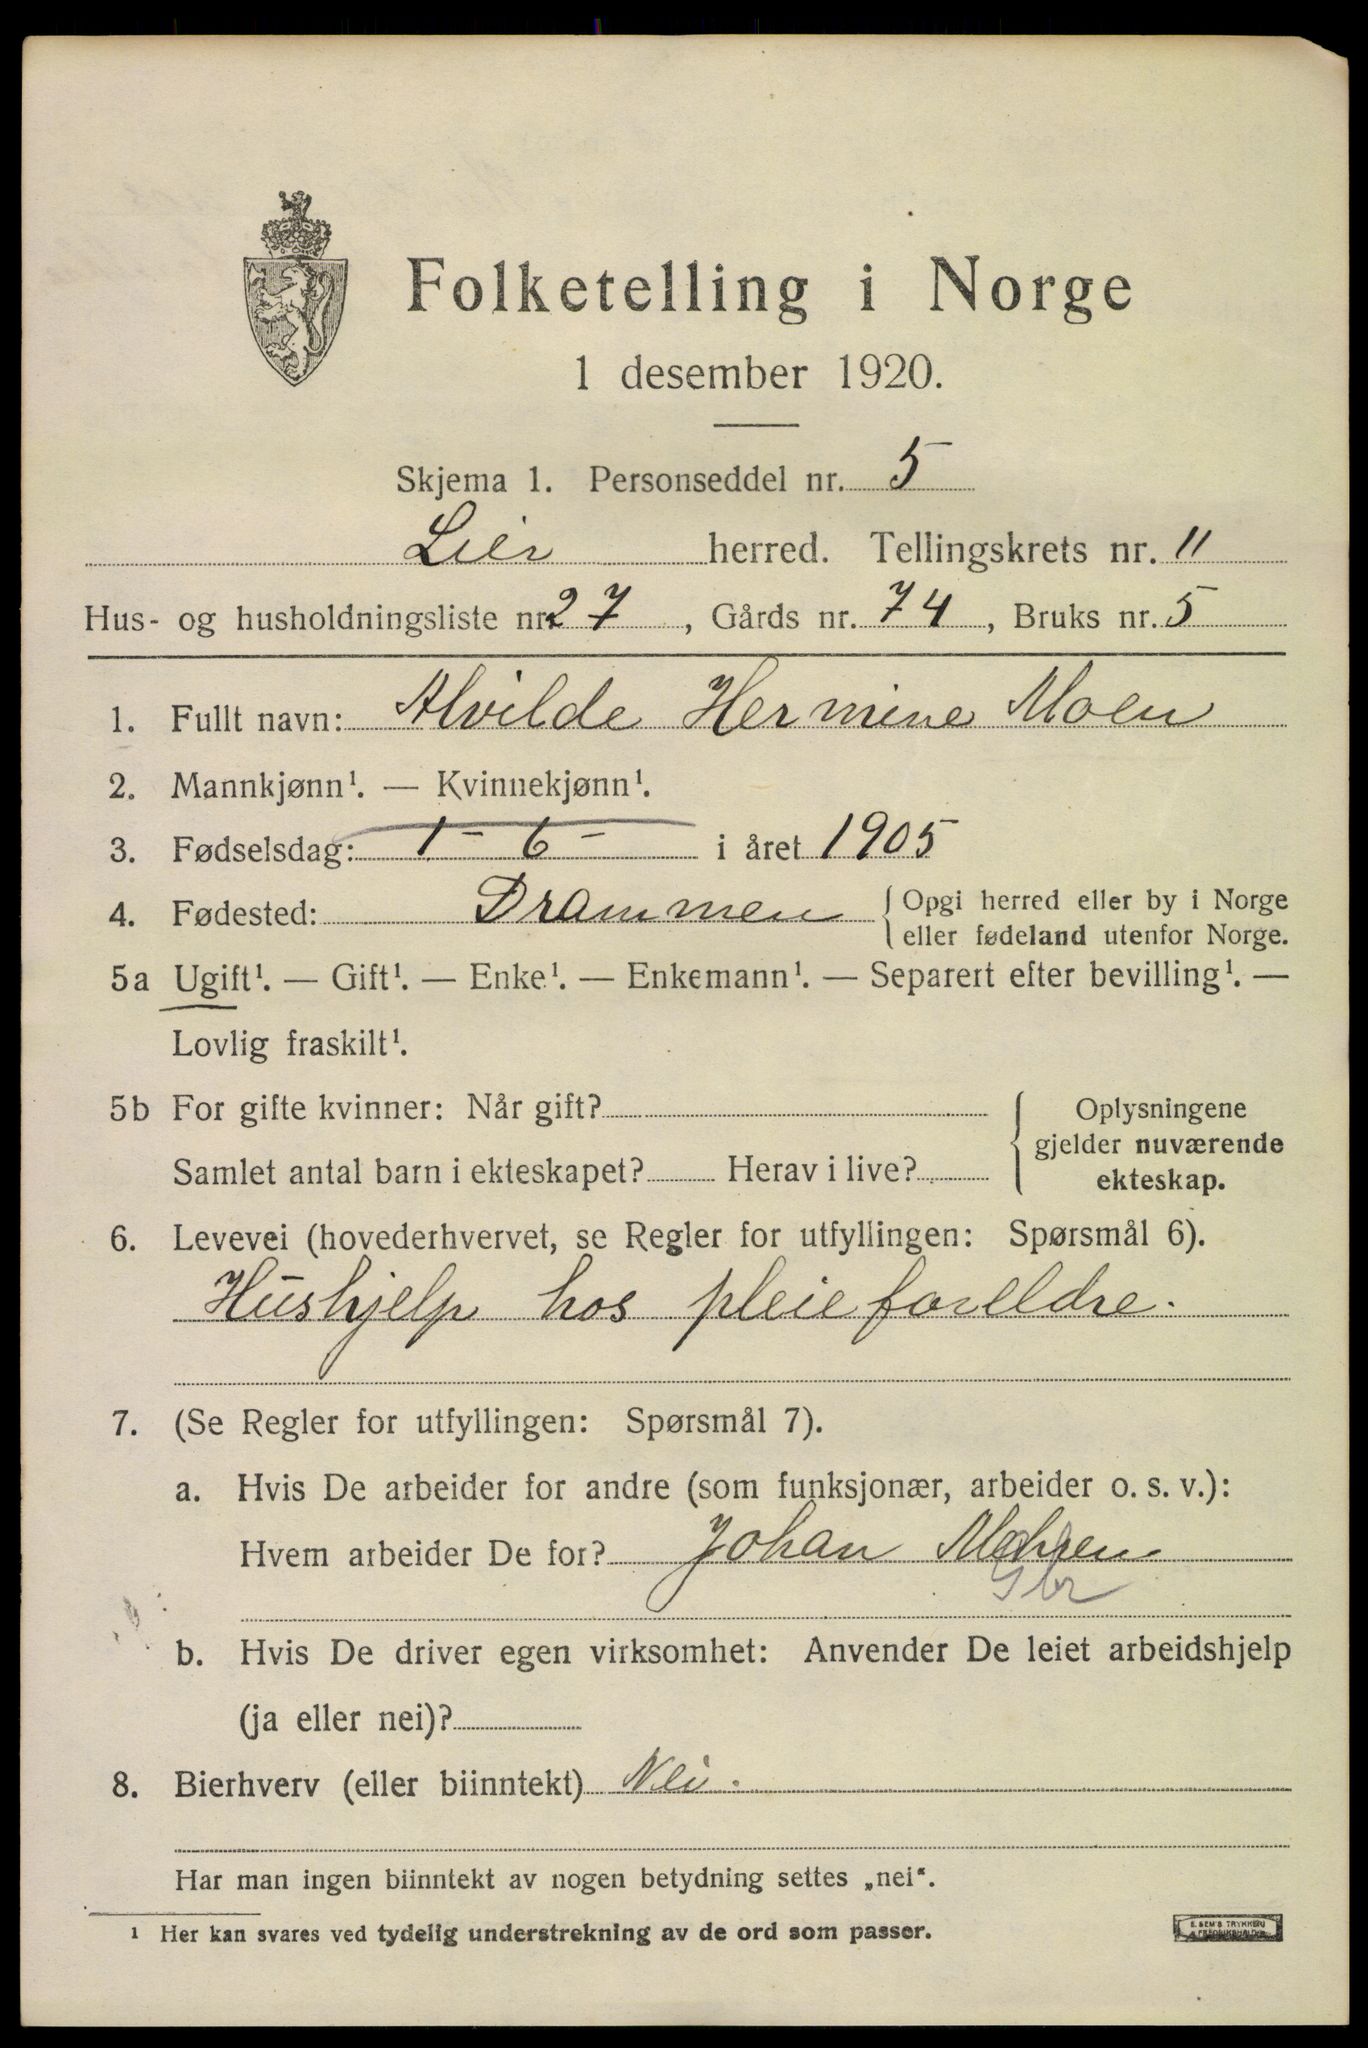 Folketelling i Norge
1 desember 1920.
Skjema 1. Personseddel nr. 5
Lier herred. Tellingskrets nr. 11
Hus- og husholdningsliste nr. 27, Gårds nr. 74, Bruks nr. 5
1. Fullt navn: Alvilde Hermine Moen
2. Mannkjønn¹. — Kvinnekjønn¹.
3. Fødselsdag: 1 - 6 - i året 1905
4. Fødested: Drammen {Opgi herred eller by i Norge
eller fødeland utenfor Norge.
5a Ugift¹. — Gift¹. — Enke¹. — Enkemann¹. — Separert efter bevilling¹. —
Lovlig fraskilt¹.
5b For gifte kvinner: Når gift?
Samlet antal barn i ekteskapet? Herav i live?
Oplysningene
gjelder nuværende
ekteskap.
6. Levevei (hovederhvervet, se Regler for utfyllingen: Spørsmål 6).
Hushjelp hos pleieforeldre.
7. (Se Regler for utfyllingen: Spørsmål 7).
a. Hvis De arbeider for andre (som funksjonær, arbeider o. s. v.):
Hvem arbeider De for? Johan
b. Hvis De driver egen virksomhet: Anvender De leiet arbeidshjelp
(ja eller nei)?
8. Bierhverv (eller biinntekt) Nei.
Har man ingen biinntekt av nogen betydning settes „nei“.
¹ Her kan svares ved tydelig understrekning av de ord som passer.